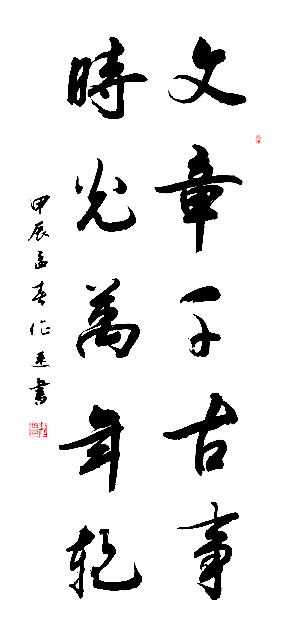 文章千古事
時光萬年
甲辰孟春作書